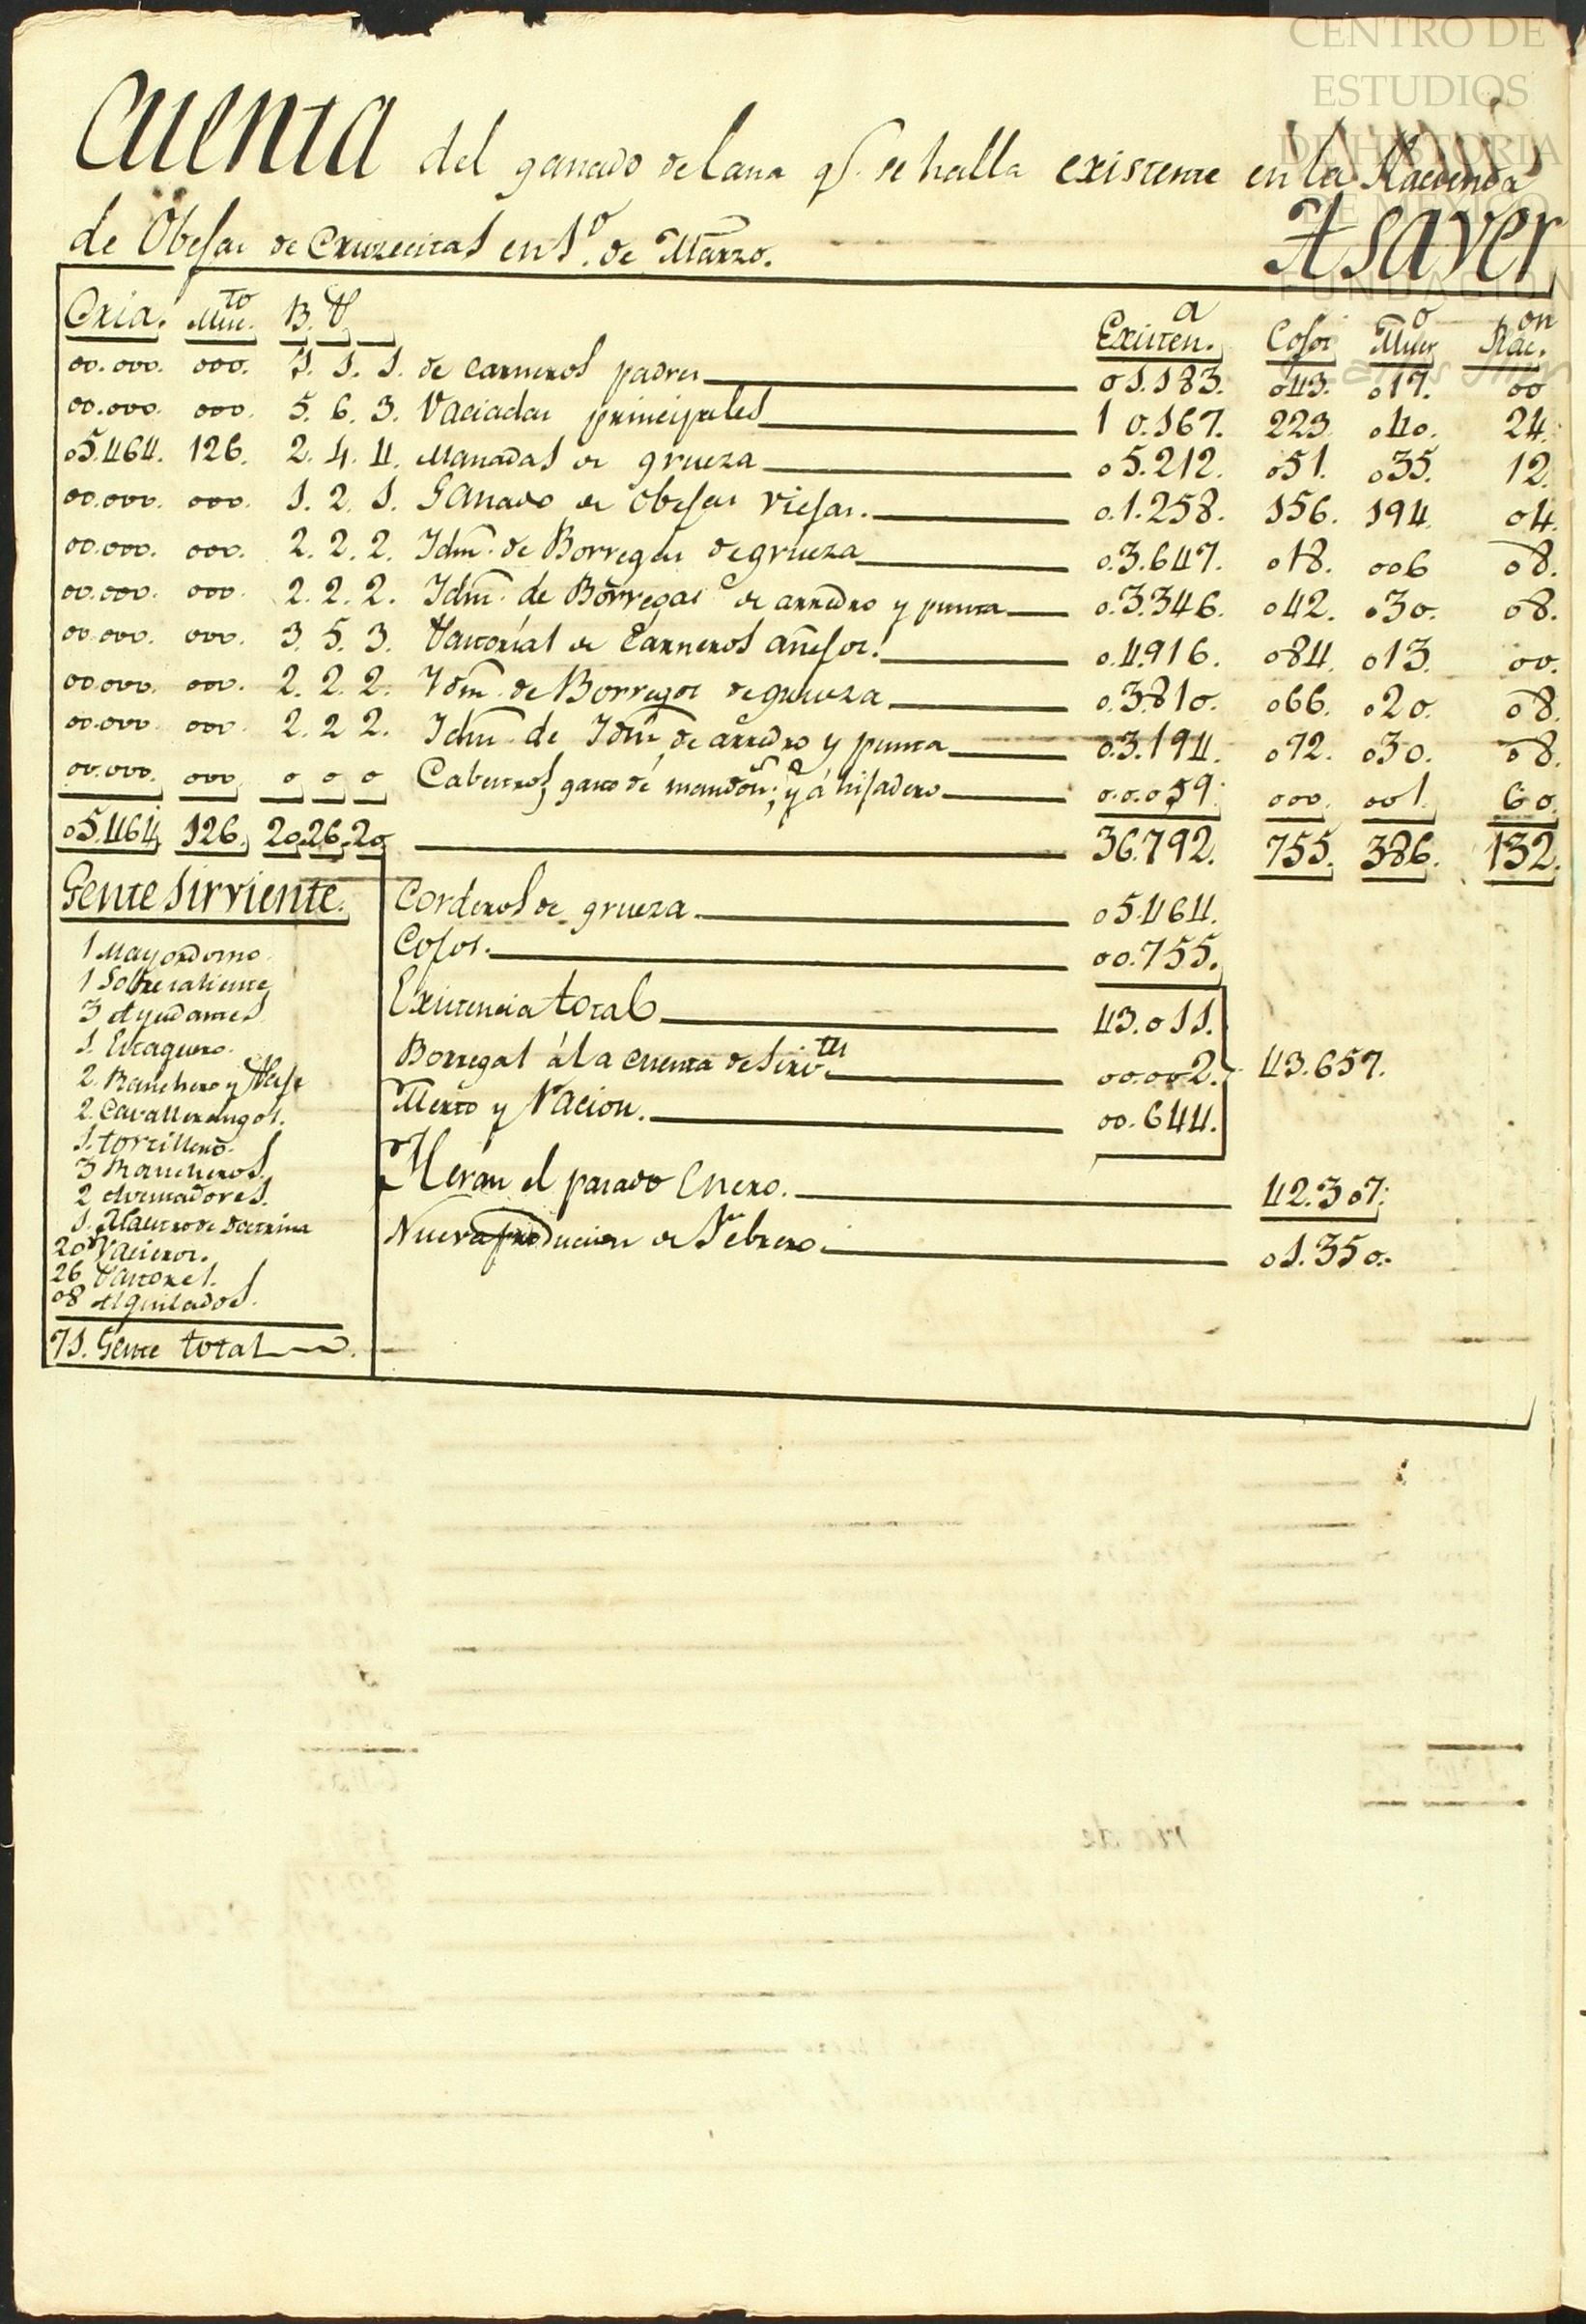 CENTRO DE
ESTUDIOS
DE HISTORIA
DE MEXICO
FUNDACION
Cuenta del ganado de lana q̃. se halla existente en la Hacienda
de Obejas de Cruzecitas en 1.º de Marzo. Asaver
Cria. Mũe.to B. V. Existen.a Cojos Muer.o Rac.on
00.000. 000. 1. 1. 1. de carneros padres 01.183. 043. 017. 00
00.000. 000. 5. 6. 3. Vaciadas principales 10.167. 223. 040. 24.
05.464. 126. 2. 4. 4. Manadas de grueza 05.212. 051. 035. 12.
00.000. 000. 1. 2. 1. Ganado de Obejas viejas. 0.1.258. 156. 194. 04.
00.000. 000. 2. 2. 2. Idm̃. de Borregas de grueza 0.3.647. 018. 006 08.
00.000. 000. 2. 2. 2. Idm̃. de Borregas de arredro y punta 0.3.346. 042. 030. 08.
00.000. 000. 3. 5. 3. Pastorias de Carneros añejos. 0.4.916. 084. 013. 00.
00.000. 000. 2. 2. 2. Idm̃. de Borregos de grueza 0.3.810. 066. 020. 08.
00.000. 000. 2. 2 2. Idm̃. de Idm̃ de arredro y punta 0.3.194. 072. 030. 08.
00.000. 000 0 0 0 Cabestros, gan.o de mansion; y ahijadero 0.0.059. 000. 001. 60.
05.464 126. 20.26.20 36.792. 755. 386. 132.
Gente Sirviente.
1 Mayordomo.
1 Sobresaliente
3 Ayudantes
1. Estaquero.
2. Ranchero y
2. Cavallerangos.
1. tortillero.
3 Rancheros.
2 Aventadores.
1. Maestro de doctrina
20 Vacieros.
26 Pastores.
08 Alquilados.
71. Gente total
Corderos de grueza 05.464.
Cojos. 00.755.
Existencia total 43.011.
Borregas á la cuenta de Sirv.tes 00.002. 43.657.
Muerto y Racion. 00.644.
Heran el pasado Enero. 42.307.
Nueva produccion de Febrero. 01.350.